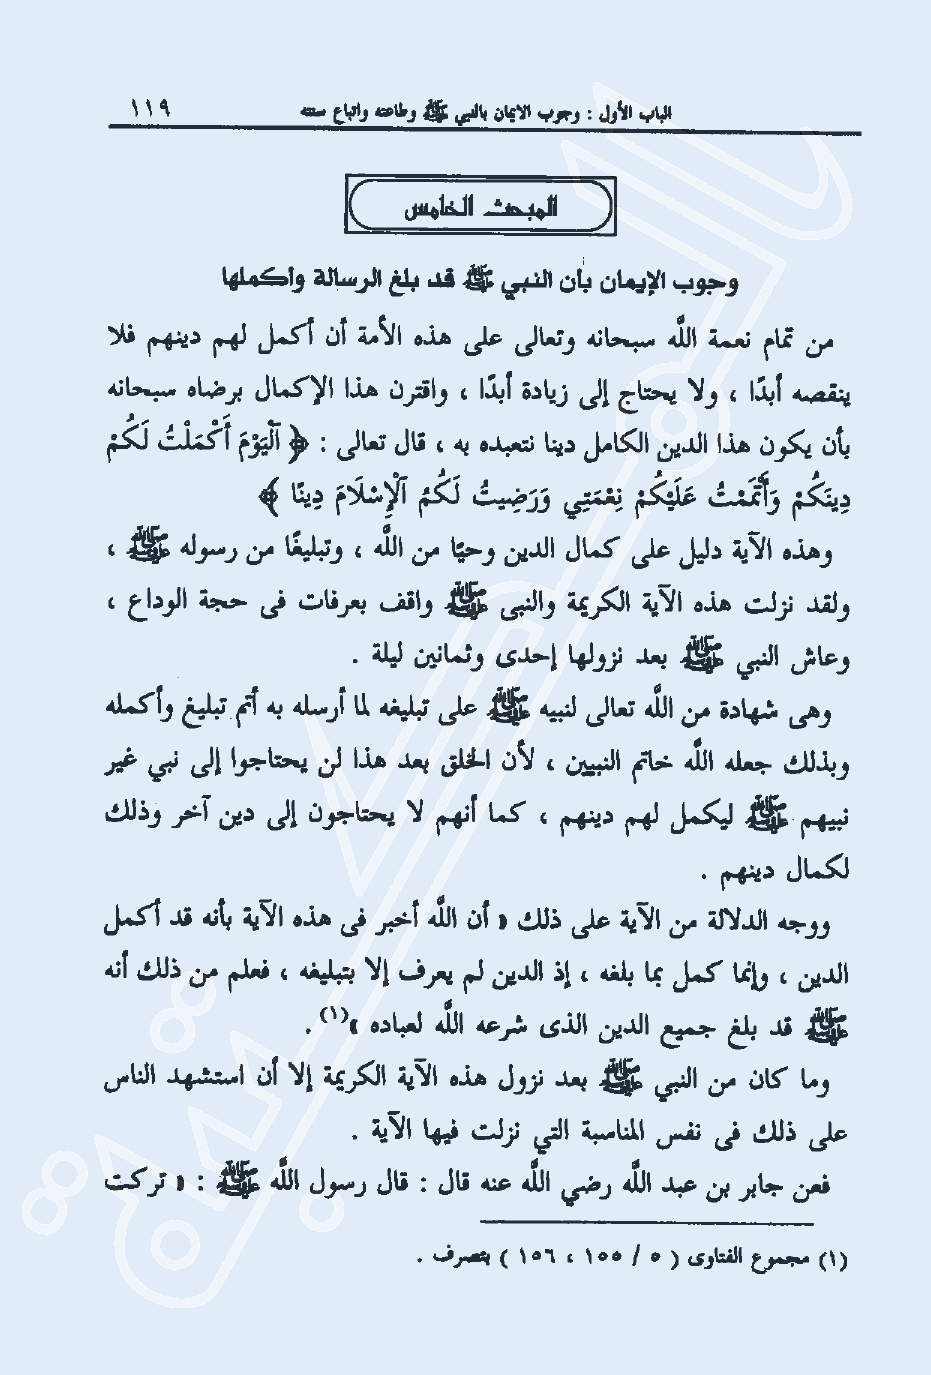 الباب الأول : وجوب الايمان بالنبي ﷺ وطاعته واتباع سنته ١١٩
المبحث الخامس
وجوب الإيمان بأن النبي ﷺ قد بلغ الرسالة وأكملها
من تمام نعمة اللَّه سبحانه وتعالى على هذه الأمة أن أكمل لهم دينهم فلا
ينقصه أبدًا ، ولا يحتاج إلى زيادة أبدًا ، واقترن هذا الإكمال برضاه سبحانه
بأن يكون هذا الدين الكامل دينا نتعبده به ، قال تعالى : ﴿ ٱلْيَوْمَ أَكْمَلْتُ لَكُمْ
دِينَكُمْ وَأَتْمَمْتُ عَلَيْكُمْ نِعْمَتِي وَرَضِيتُ لَكُمُ ٱلْإِسْلَامَ دِينًا ﴾
وهذه الآية دليل على كمال الدين وحيًا من اللَّه ، وتبليغًا من رسوله ﷺ ،
ولقد نزلت هذه الآية الكريمة والنبى ﷺ واقف بعرفات فى حجة الوداع ،
وعاش النبي ﷺ بعد نزولها إحدى وثمانين ليلة .
وهى شهادة من اللَّه تعالى لنبيه ﷺ على تبليغه لما أرسله به أتم تبليغ وأكمله
وبذلك جعله اللَّه خاتم النبيين ، لأن الخلق بعد هذا لن يحتاجوا إلى نبي غير
نبيهم ﷺ ليكمل لهم دينهم ، كما أنهم لا يحتاجون إلى دين آخر وذلك
لكمال دينهم .
ووجه الدلالة من الآية على ذلك « أن اللَّه أخبر فى هذه الآية بأنه قد أكمل
الدين ، وإنما كمل بما بلغه ، إذ الدين لم يعرف إلا بتبليغه ، فعلم من ذلك أنه
ﷺ قد بلغ جميع الدين الذى شرعه اللَّه لعباده »(١) .
وما كان من النبي ﷺ بعد نزول هذه الآية الكريمة إلا أن استشهد الناس
على ذلك فى نفس المناسبة التي نزلت فيها الآية .
فعن جابر بن عبد اللَّه رضي اللَّه عنه قال : قال رسول اللَّه ﷺ : « تركت
(١) مجموع الفتاوى ( ٥ / ١٥٥ ، ١٥٦ ) بتصرف .